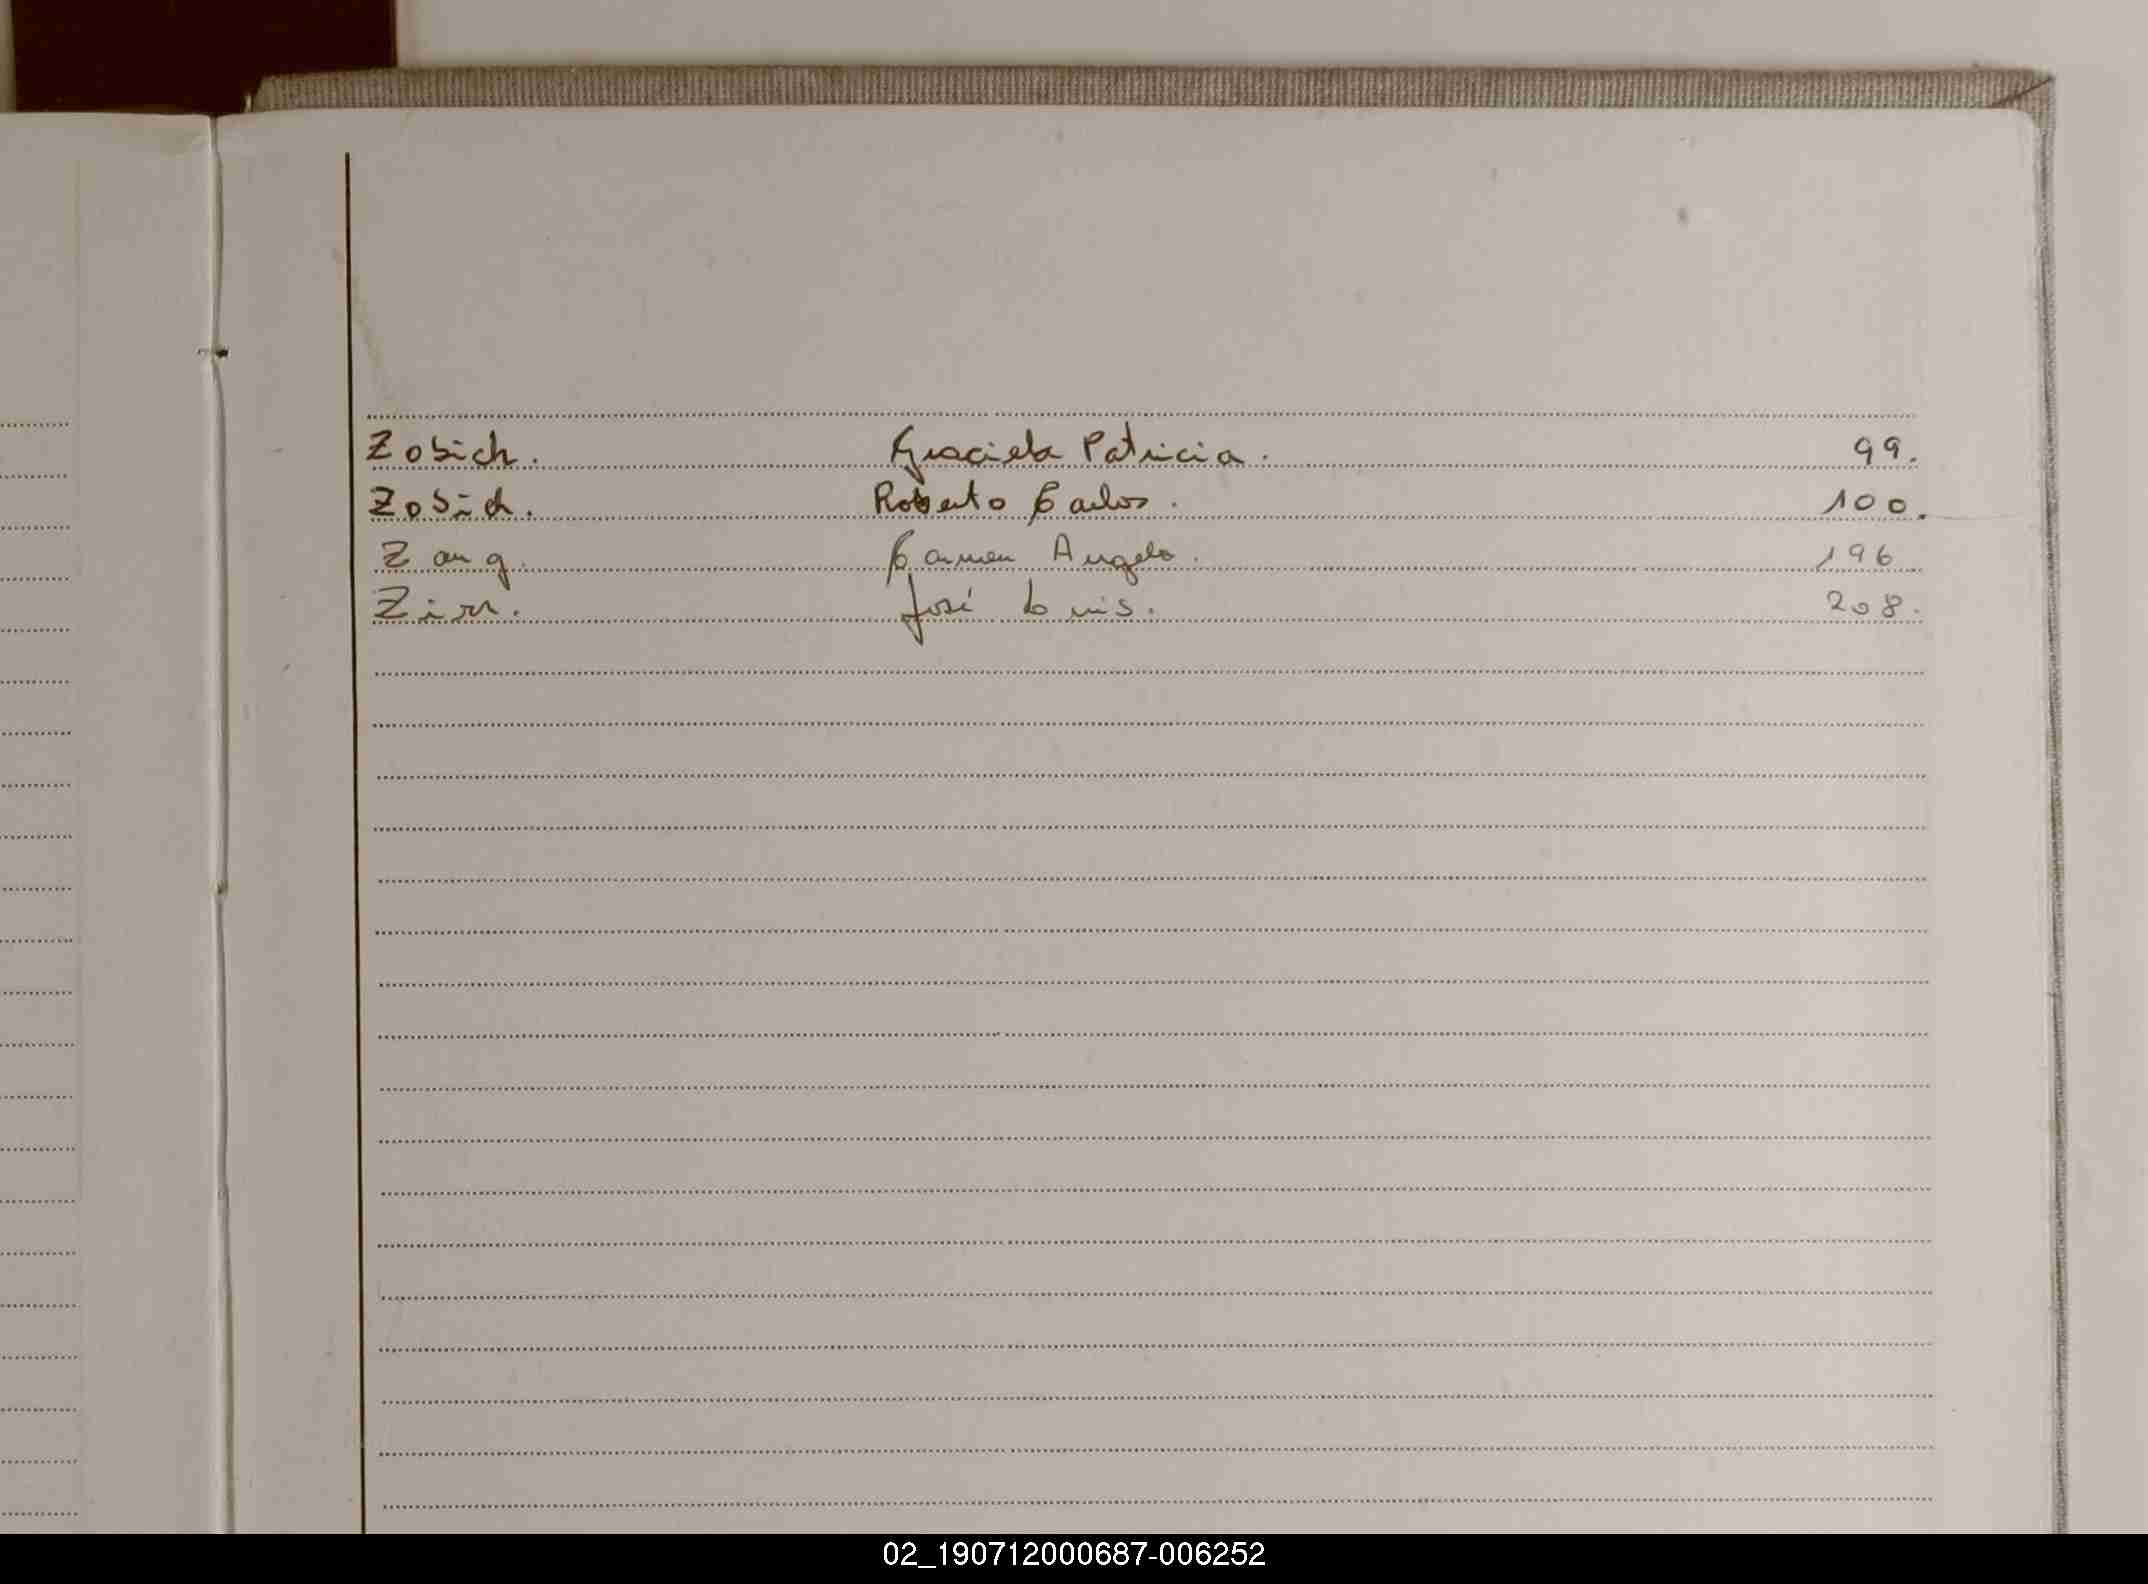 Zobich. Graciela Patricia. 99.
Zobich. Roberto Carlos. 100.
Zang. Carmen Angela. 196
José Luis. 208.
02_190712000687-006252